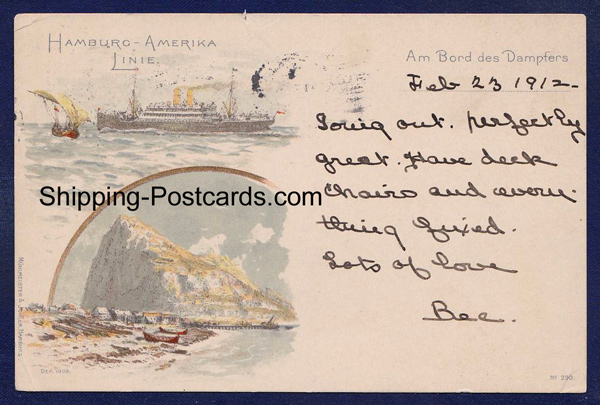 HAMBURG-AMERIKA
LINIE.
Am Bord des Dampfers
Feb 23 1912-
Going out. perfectly
great. Have deck
Chairs and every-
thing fixed.
Lots of love
Bee.
Shipping-Postcards.com
MÜHLMEISTER & JOHLER HAMBURG
DEP. 1902.
Nº 290.